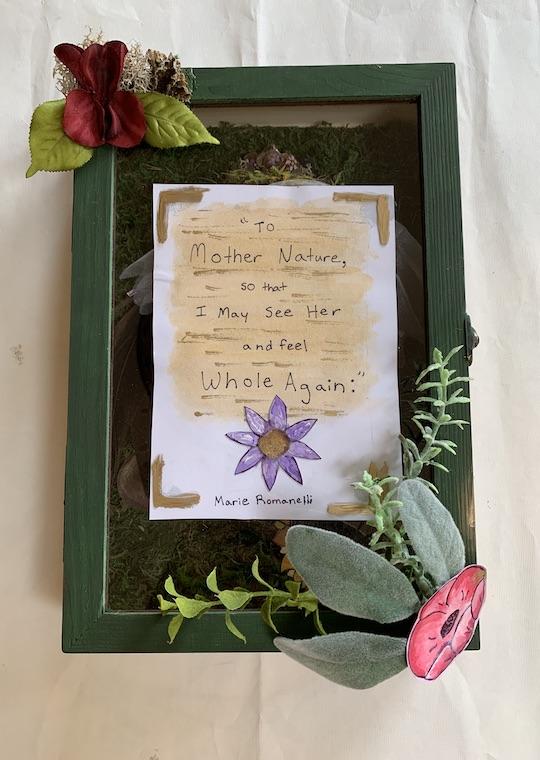 "To
Mother Nature,
so that
I May See Her
and feel
Whole Again:"
Marie Romanelli